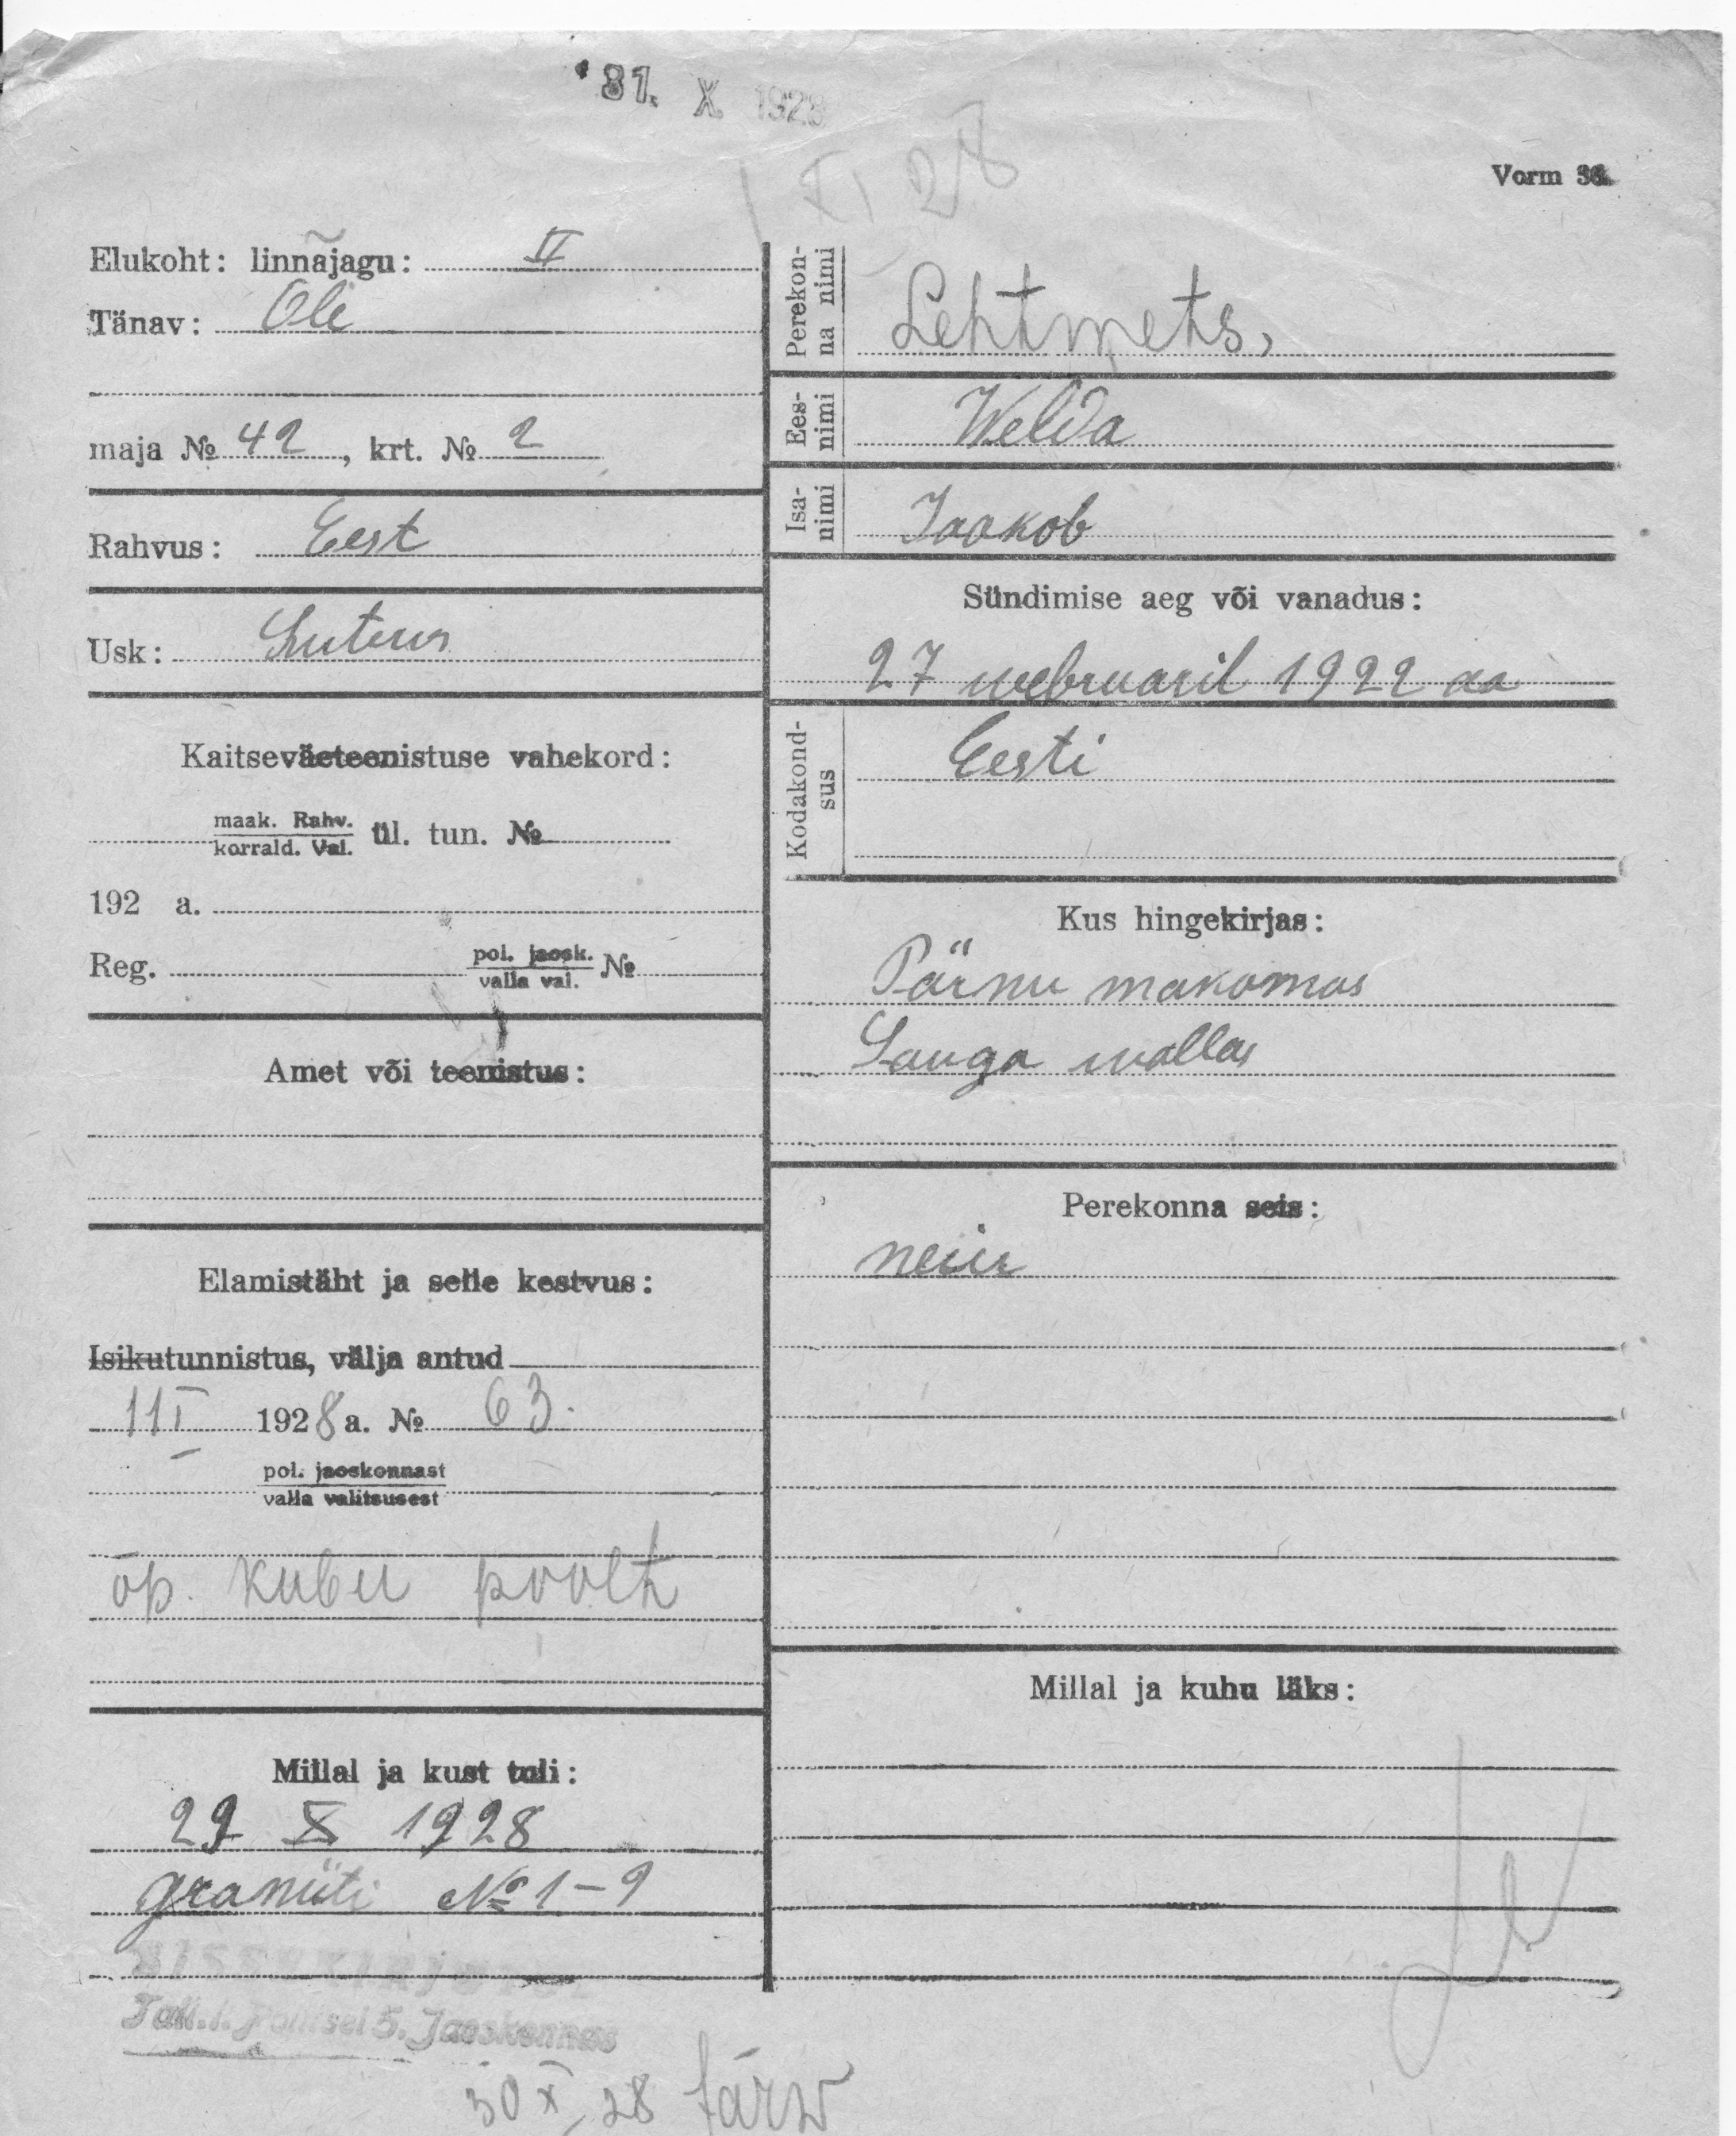 31. X 1928
1 XI 28
Vorm 36.
Elukoht: linnajagu: V
Tänav: Ole
maja № 42, krt. № 2
Rahvus: Eest
Usk: Luteus
Kaitseväeteenistuse vahekord:
maak. Rahv.
korrald. Val. ül. tun. №
192 a.
Reg. pol. jaosk. №
valla val.
Amet või teenistus:
Elamistäht ja selle kestvus:
Isikutunnistus, välja antud
11 I 1928 a. № 63.
pol. jaoskonnast
valla valitsusest
õp. Kubu poolt
Millal ja kust tuli:
29 X 1928
graniiti № 1-9
Sissekirjutat
Tall.l. Politsei 5. Jaoskonnas
30 X 28 Järw
Perekon-
na nimi Lehtmets,
Ees-
nimi Welda
Isa-
nimi Jaakob
Sündimise aeg või vanadus:
27 webruaril 1922 aa
Kodakond-
sus Eesti
Kus hingekirjas:
Pärnu makomas
Sauga wallas
Perekonna seis:
neiu
Millal ja kuhu läks: